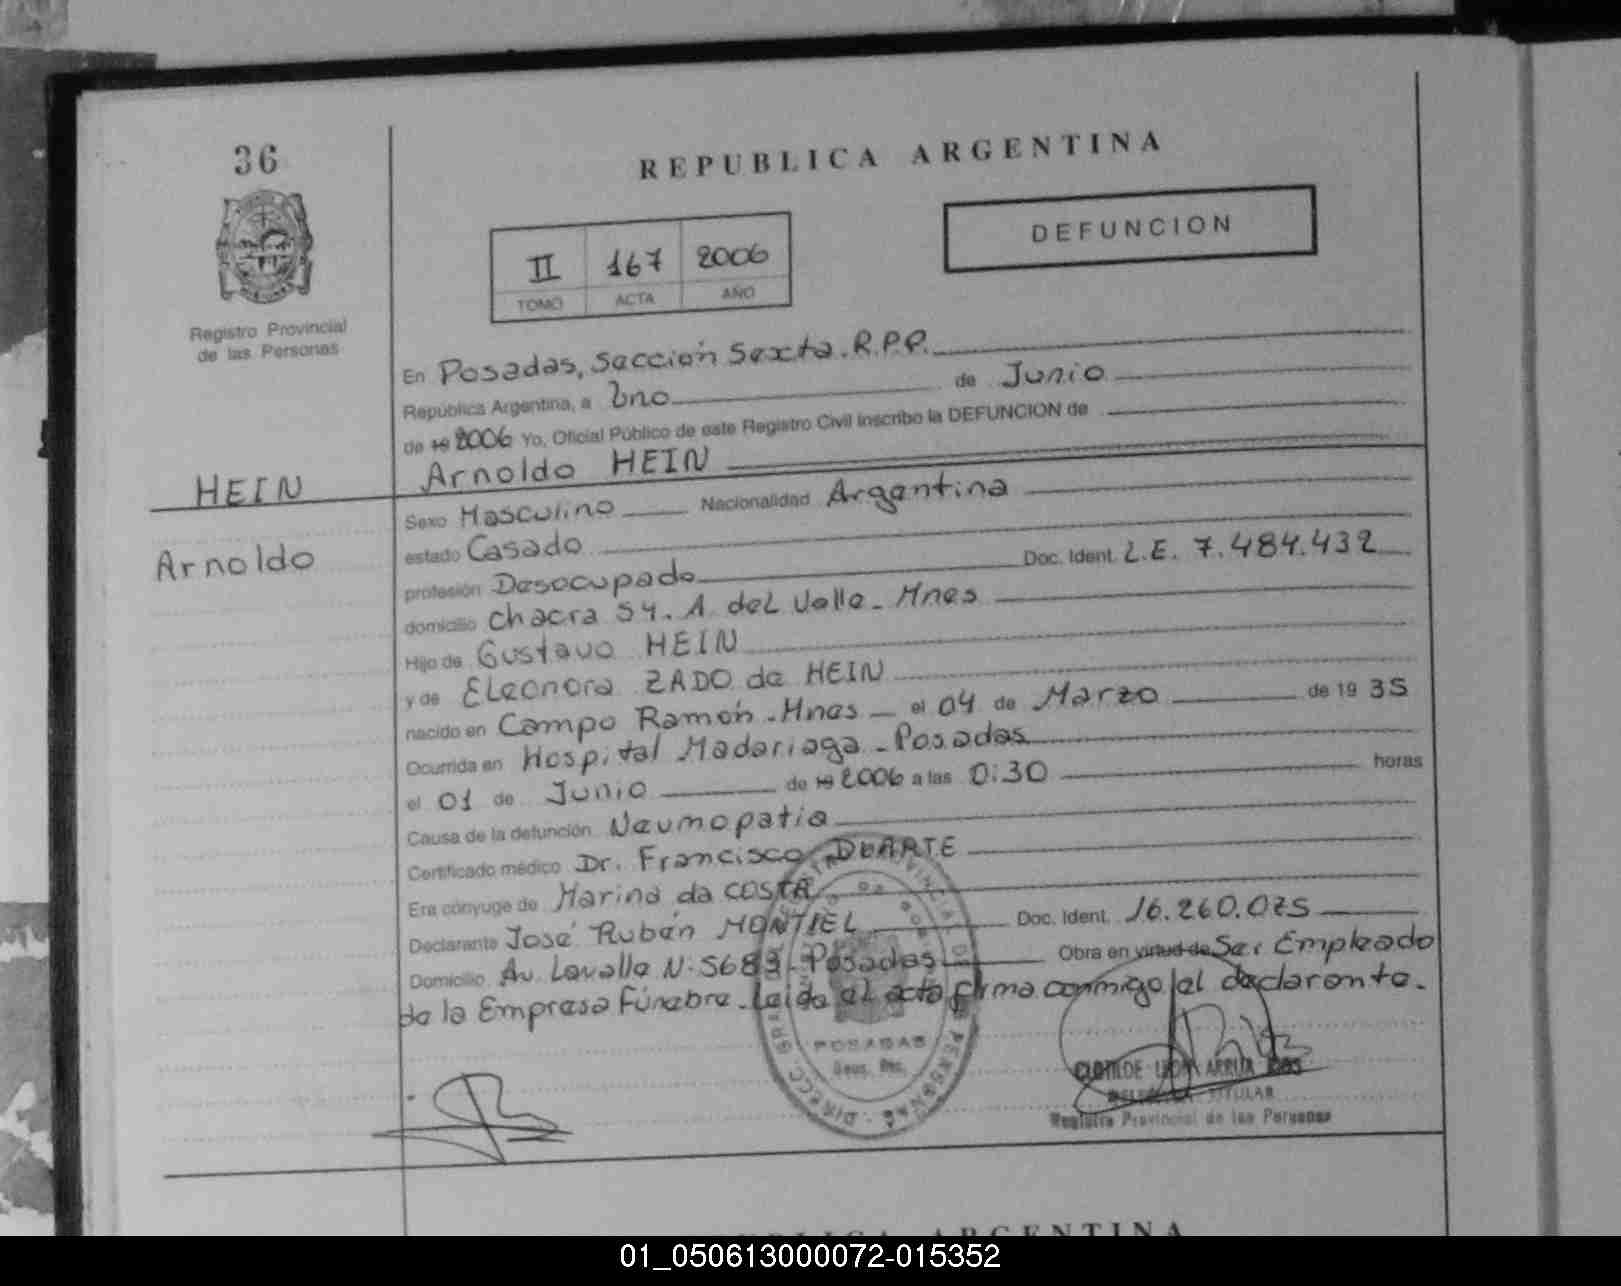 36
REPUBLICA ARGENTINA
DEFUNCION
II 167 2006
TOMO ACTA AÑO
Registro Provincial
de las Personas
En Posadas, Sección Sexta. R.P.P.
República Argentina, a Uno de Junio
de 19 2006 Yo, Oficial Público de este Registro Civil inscribo la DEFUNCION de
Arnoldo HEIN
HEIN
Arnoldo
Sexo Masculino Nacionalidad Argentina
estado Casado
profesión Desocupado Doc. Ident. L.E. 7.484.432
domicilio Chacra 54. A. del Valle - Mnes
Hijo de Gustavo HEIN
y de Eleonora ZADO de HEIN
nacido en Campo Ramón - Mnes - el 04 de Marzo de 19 35
Ocurrida en Hospital Madariaga - Posadas
el 01 de Junio de 19 2006 a las 0:30 horas
Causa de la defunción Neumopatia
Certificado médico Dr. Francisco DUARTE
Era cónyuge de Marina da COSTA
Declarante José Rubén MONTIEL Doc. Ident. 16.260.075
Domicilio Av. Lavalle N: 5683 - Posadas Obra en virtud de Ser Empleado
de la Empresa Fúnebre - Leida el acta firma conmigo el declarante.
POSADAS
CLOTILDE LEON ARRUA
TITULAR
Registro Provincial de las Personas
REPUBLICA ARGENTINA
01_050613000072-015352